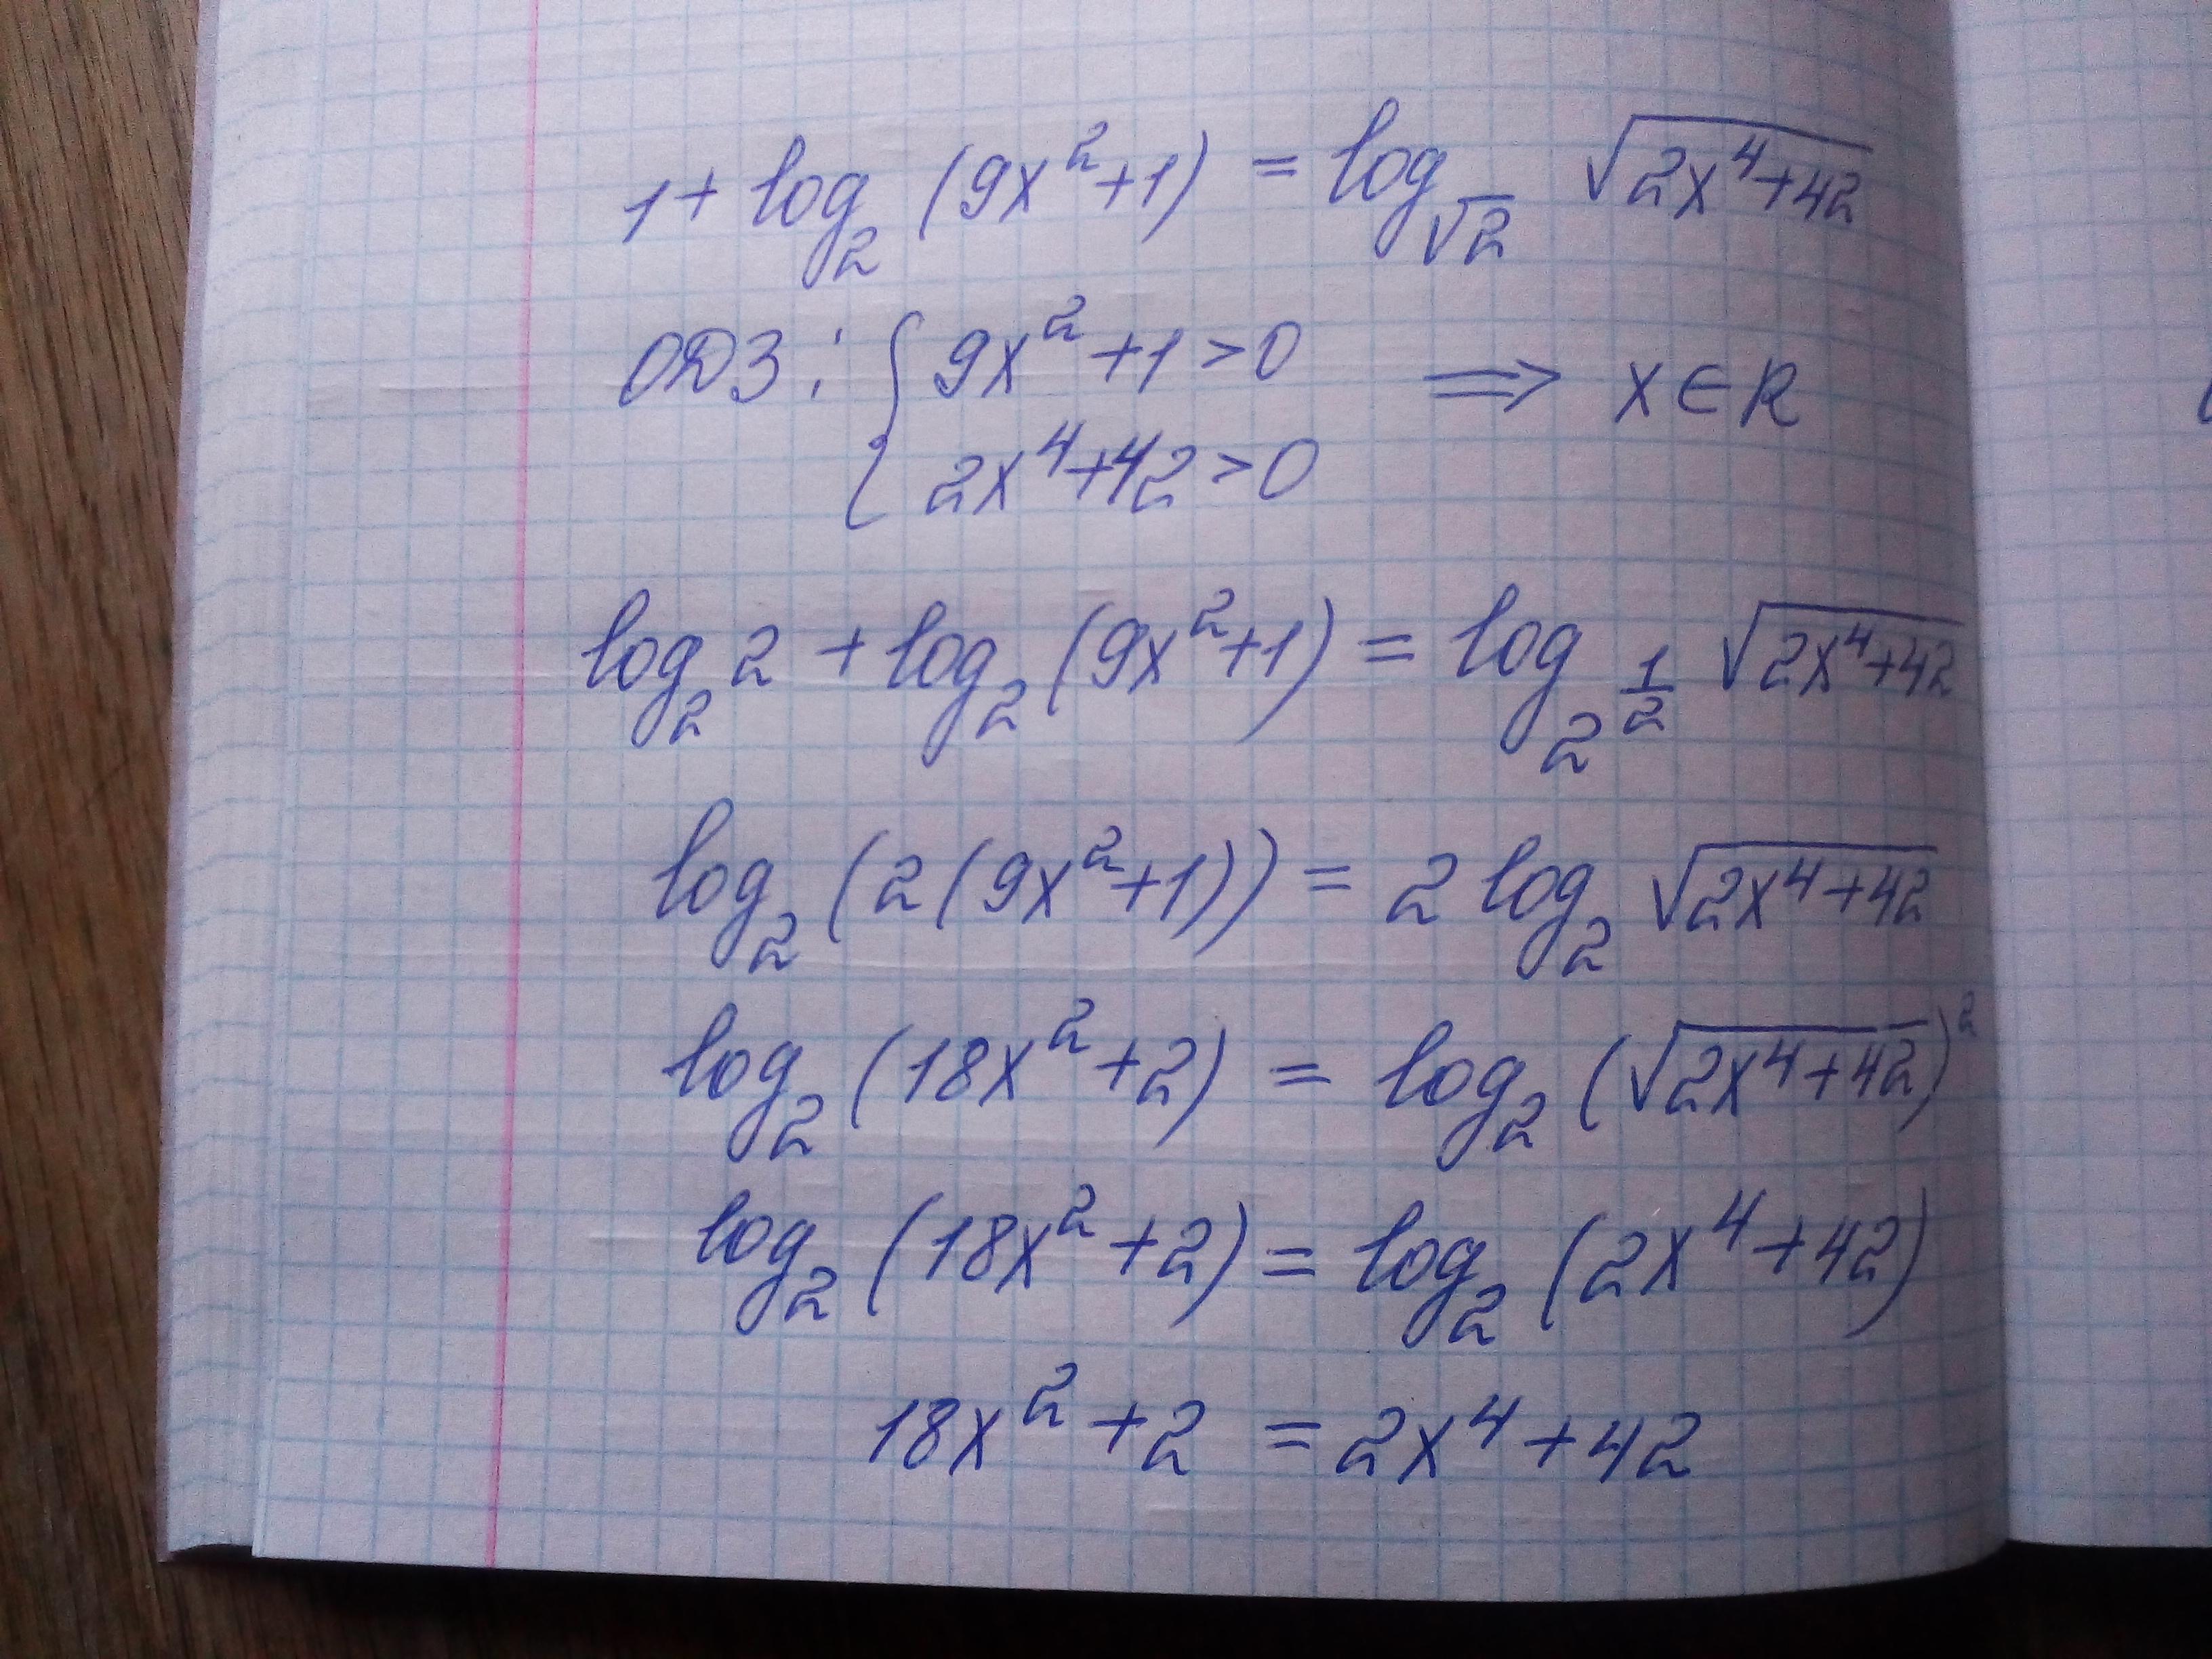 1 + log₂ (9x²+1) = log_√2 √(2x⁴+42)
ОДЗ: { 9x²+1>0 ⟹ x∈R
2x⁴+42>0
log₂ 2 + log₂ (9x²+1) = log_2^(1/2) √(2x⁴+42)
log₂ (2(9x²+1)) = 2 log₂ √(2x⁴+42)
log₂ (18x²+2) = log₂ (√(2x⁴+42))²
log₂ (18x²+2) = log₂ (2x⁴+42)
18x²+2 = 2x⁴+42